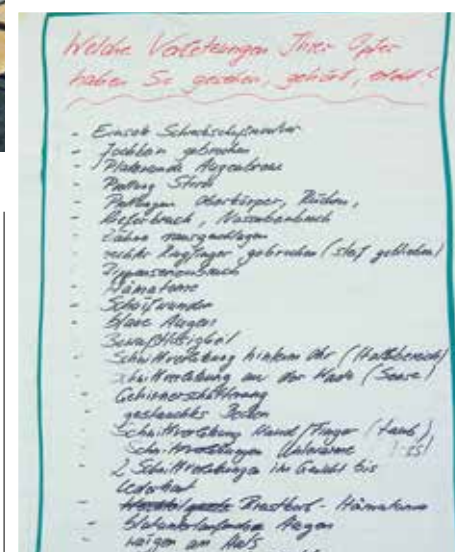 Welche Verletzungen Ihrer Opfer
haben Sie gesehen, gehört, erlebt?
- Einsatz Schreckschusswaffe
- Jochbein gebrochen
- Platzwunde Augenbraue
- Prellung Stirn
- Prellungen Oberkörper, Rücken,
- Kieferbruch, Nasenbeinbruch
- Zähne rausgeschlagen
- rechter Ringfinger gebrochen (steif geblieben)
- Rippenserienbruch
- Hämatome
- Schürfwunden
- blaue Augen
- Bewußtlosigkeit
- Schnittverletzung hinterm Ohr (Halsbereich)
- Schnittverletzung an der Wade (Sense)
- Gehirnerschütterung
- gestauchter
- Schnittverletzung Hand/Finger (taub)
- Schnittverletzungen Unterarme
- 2 Schnittverletzungen im Gesicht bis
- Brustkorb - Hämatome
- Augen
- am Hals